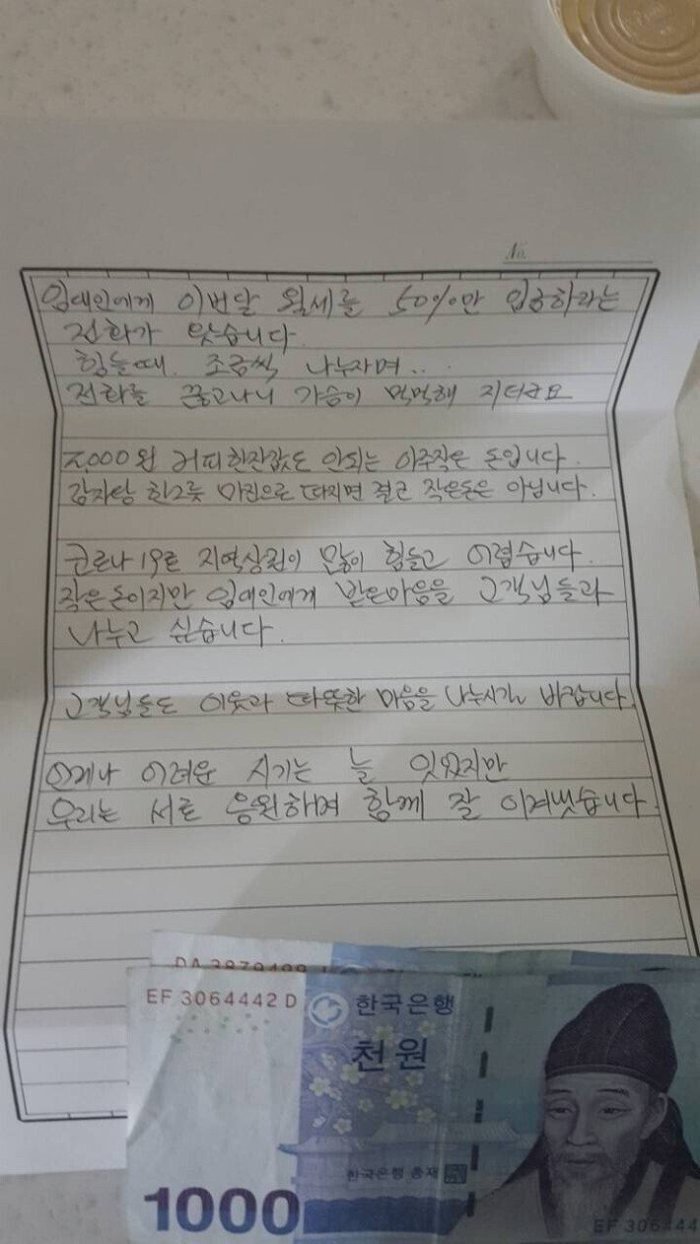 No.
임대인에게 이번달 월세를 50%만 입금하라는
전화가 왔습니다
힘들때. 조금씩 나누자며..
전화를 끊고나니 가슴이 먹먹해 지더군요
2,000원 커피한잔값도 안되는 아주작은 돈입니다.
감자탕 한그릇 마진으로 따지면 결코 작은돈은 아닙니다.
코로나19로 지역상권이 많이 힘들고 어렵습니다.
작은돈이지만 임대인에게 받은마음을 고객님들과
나누고 싶습니다.
고객님들도 이웃과 따뜻한 마음을 나누시길 바랍니다.
언제나 어려운 시기는 늘 잇었지만
우리는 서로 응원하며 함께 잘 이겨냇습니다.
EF 3064442 D
한국은행
천원
한국은행 총재
1000